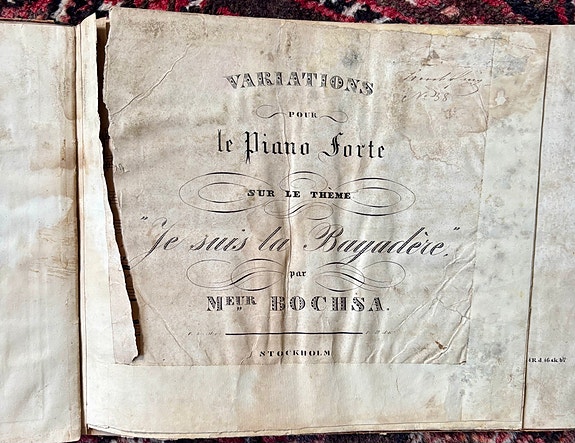 VARIATIONS
POUR
le Piano Forte
SUR LE THÈME
"Je suis la Bayadère."
par
MEUR BOCHSA.
STOCKHOLM